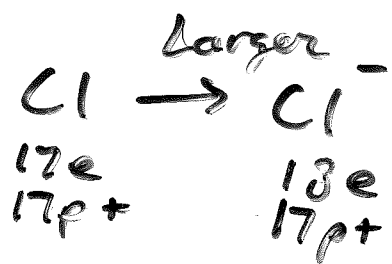 Larger
Cl → Cl⁻
17e 18e
17p+ 17p+